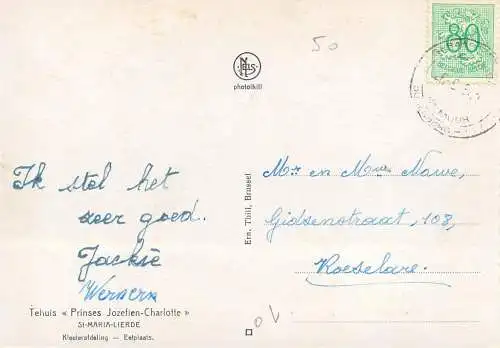 50
80
NELS
photothill
Ik stel het
zeer goed.
Jackie
Tehuis « Prinses Jozefien-Charlotte »
St-MARIA-LIERDE
Kleuterafdeling — Eetplaats.
Ern. Thill, Brussel
Mr en Mevr
Gidsenstraat, 108,
Roeselare.